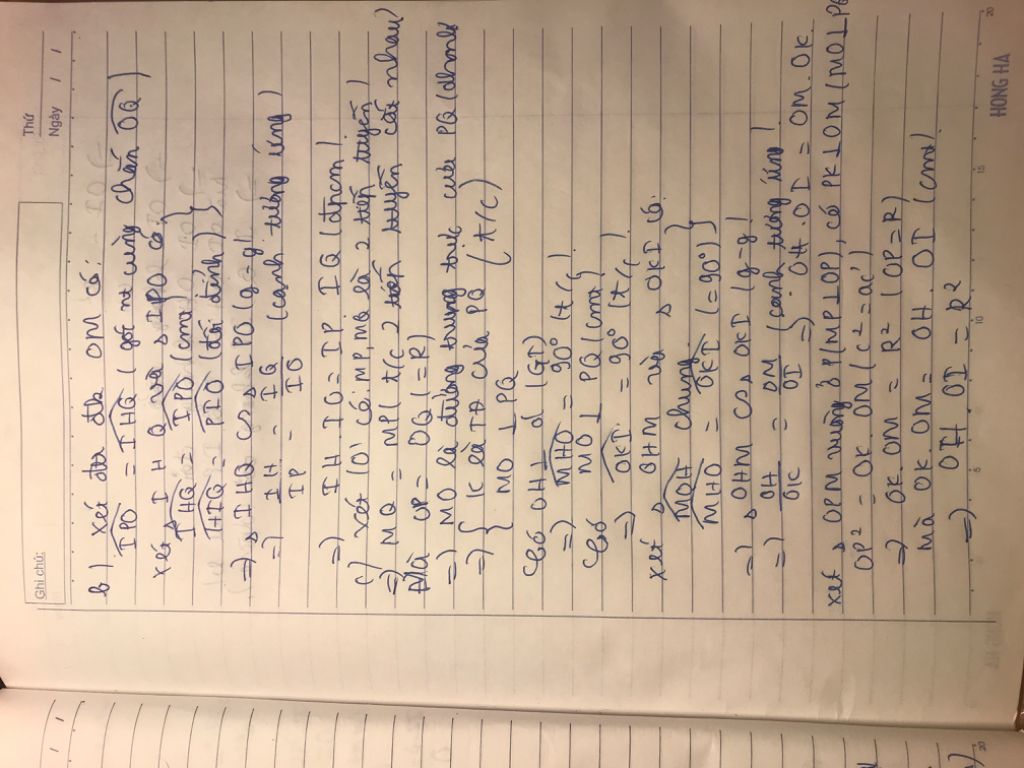 Thứ
Ngày / /
Ghi chú:
b) Xét đtr đk OM có:
IPO = IHQ (góc nt cùng chắn OQ)
Xét Δ IHQ và Δ IPO có:
IHQ = IPO (cmt)
HIQ = PIO (đối đỉnh)
=> Δ IHQ ∽ Δ IPO (g-g)
=> IH/IP = IQ/IO (cạnh tương ứng)
=> IH.IO = IP.IQ (đpcm)
c) Xét (O) có: MP, MQ là 2 tiếp tuyến
=> MQ = MP (t/c 2 tiếp tuyến cắt nhau)
Mà OP = OQ (=R)
=> MO là đường trung trực của PQ (dhnb)
=> { K là TĐ của PQ (t/c)
MO ⊥ PQ
Có OH ⊥ d (GT)
=> MHO = 90° (t/c)
Có MO ⊥ PQ (cmt)
=> OKI = 90° (t/c)
Xét Δ OHM và Δ OKI có:
MOH chung
MHO = OKI (=90°)
=> Δ OHM ∽ Δ OKI (g-g)
=> OH/OK = OM/OI (cạnh tương ứng)
=> OH.OI = OM.OK
Xét Δ OPM vuông ở P (MP⊥OP), có PK⊥OM (MO⊥PQ
OP² = OK.OM (c² = ac')
=> OK.OM = R² (OP=R)
Mà OK.OM = OH.OI (cmt)
=> OH.OI = R²
5
10
15
20
HONG HA
/ /
20